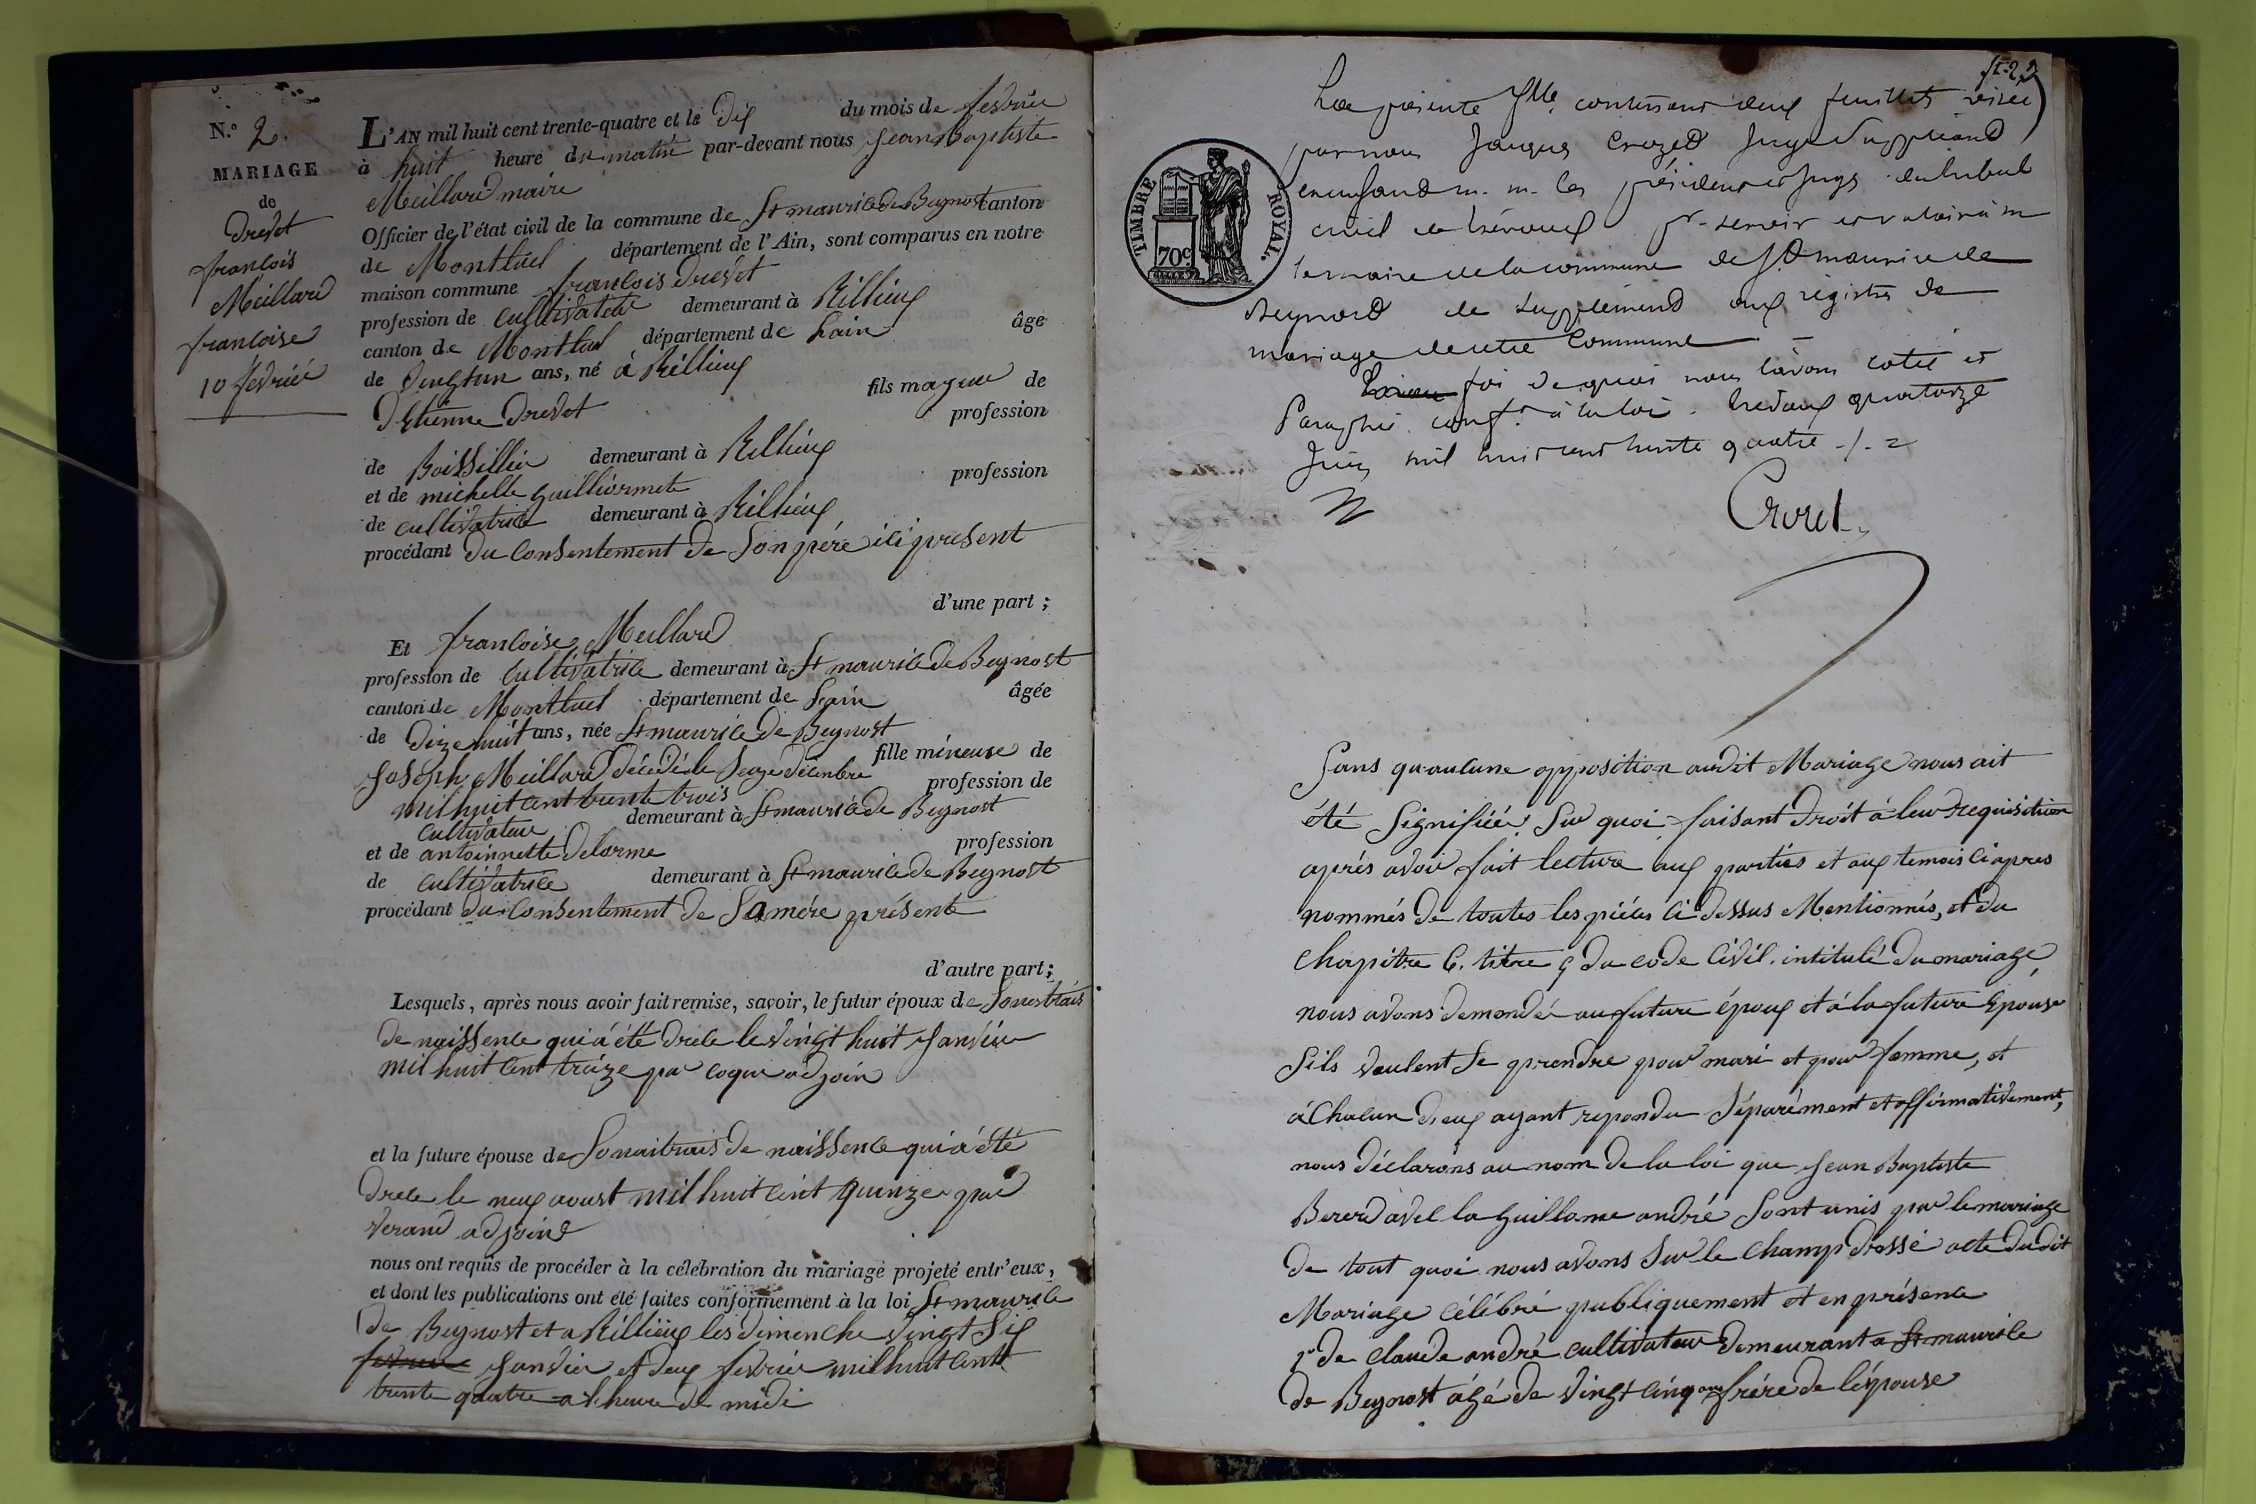 N.o 2.
MARIAGE
de
Drevet
françois
Meillard
francoise
10 février
L'AN mil huit cent trente-quatre et le Dix du mois de fevrier
à huit heure du matin par-devant nous Jean Baptiste
Meillard maire
Officier de l'état civil de la commune de St maurice de Beynost canton
de Montluel département de l'Ain, sont comparus en notre
maison commune francois Drevet
profession de cultivateur demeurant à Rillieux
canton de Montluel département de Lain âgé
de vingt un ans, né à Rillieux
fils majeur de
D'Etienne Drevet profession
de Boissellier demeurant à Rillieux
et de michelle Guilliermete profession
de cultivatrice demeurant à Rillieux
procédant du Consentement de Son pére ici present
d'une part ;
Et francoise Meillard
profession de cultivatrice demeurant à St maurice de Beynost
canton de Montluel département de Lain âgée
de Dize huit ans, née St maurice de Beynost
fille mineuse de
Joseph Meillard décédé le Seize décembre
mil huit cent trente trois profession de
cultivateur demeurant à St maurice de Beynost
et de antoinnette Delorme profession
de cultivatrice demeurant à St maurice de Beynost
procédant du Consentement de Sa mére présente
d'autre part ;
Lesquels, après nous avoir fait remise, savoir, le futur époux de
de naissence qui à été Drecé le vingt huit Janvier
mil huit cent treize par coque adjoin
et la future épouse de de naissence qui à été
Drecé le neuf aoust mil huit cent quinze par
Verand adjoind
nous ont requis de procéder à la célébration du mariage projeté entr'eux,
et dont les publications ont été faites conformement à la loi St maurice
de Beynost et a Rillieux les dimenche vingt Six
fevrier Janvier et deux fevrier mil huit cent
trente quatre a l'heure de midi
La présente flle contenant deux feuillets visée
par nous Jacques Crozet Juge Suppléand
en empechant m. m. les présidens et Juges du tribul
civil de trévoux pr servir et valoir à m
le maire de la commune de St maurice de
Beynost de Supplémend aux régistres de
mariage de cette Commune
En foi de quoi nous l'avons coté et
Paraphé conft à la loi. trevoux quatorze
Juin mil huit cent trente quatre
Crozet
TIMBRE ROYAL
70c
Sans qu'aulune opposition audit Mariage nous ait
été Signifiée, Sur quoi faisant Droit à leur requisition
aprés avoir fait lecture aux parties et aux temois ci apres
nommés de toutes les piéces ci dessus Mentionnés, et du
Chapitre 6. titre 5 du code Civil. intitulé du mariage,
nous avons demandé au future époux et à la future Epouse
Sils veulent Se prendre pour mari et pour femme, et
à Chacun d'eux ayant repondu Séparément et affirmativement,
nous déclarons au nom de la loi que Jean Baptiste
Bererd avec la Guillome andré Sont unis par le mariage
De tout quoi nous avons Sur le Champ dressé acte dudit
Mariage Célébré publiquement et en présence
1o De claude andré cultivateur Demeurant a St maurice
de Beynost âgé de vingt cinq ans frére de l'épouse